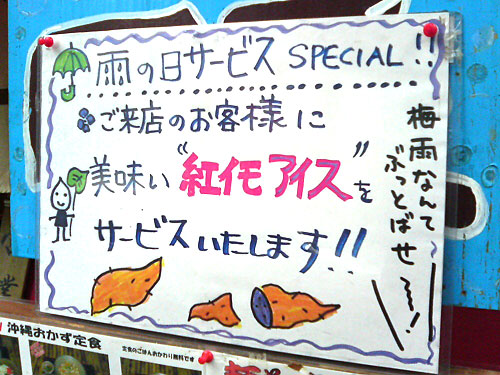 雨の日サービス SPECIAL!!
ご来店のお客様に
美味い"紅イモアイス"を
サービスいたします!!
梅雨なんて
ぶっとばせ〜!
沖縄おかず定食
定食のごはんおかわり無料です